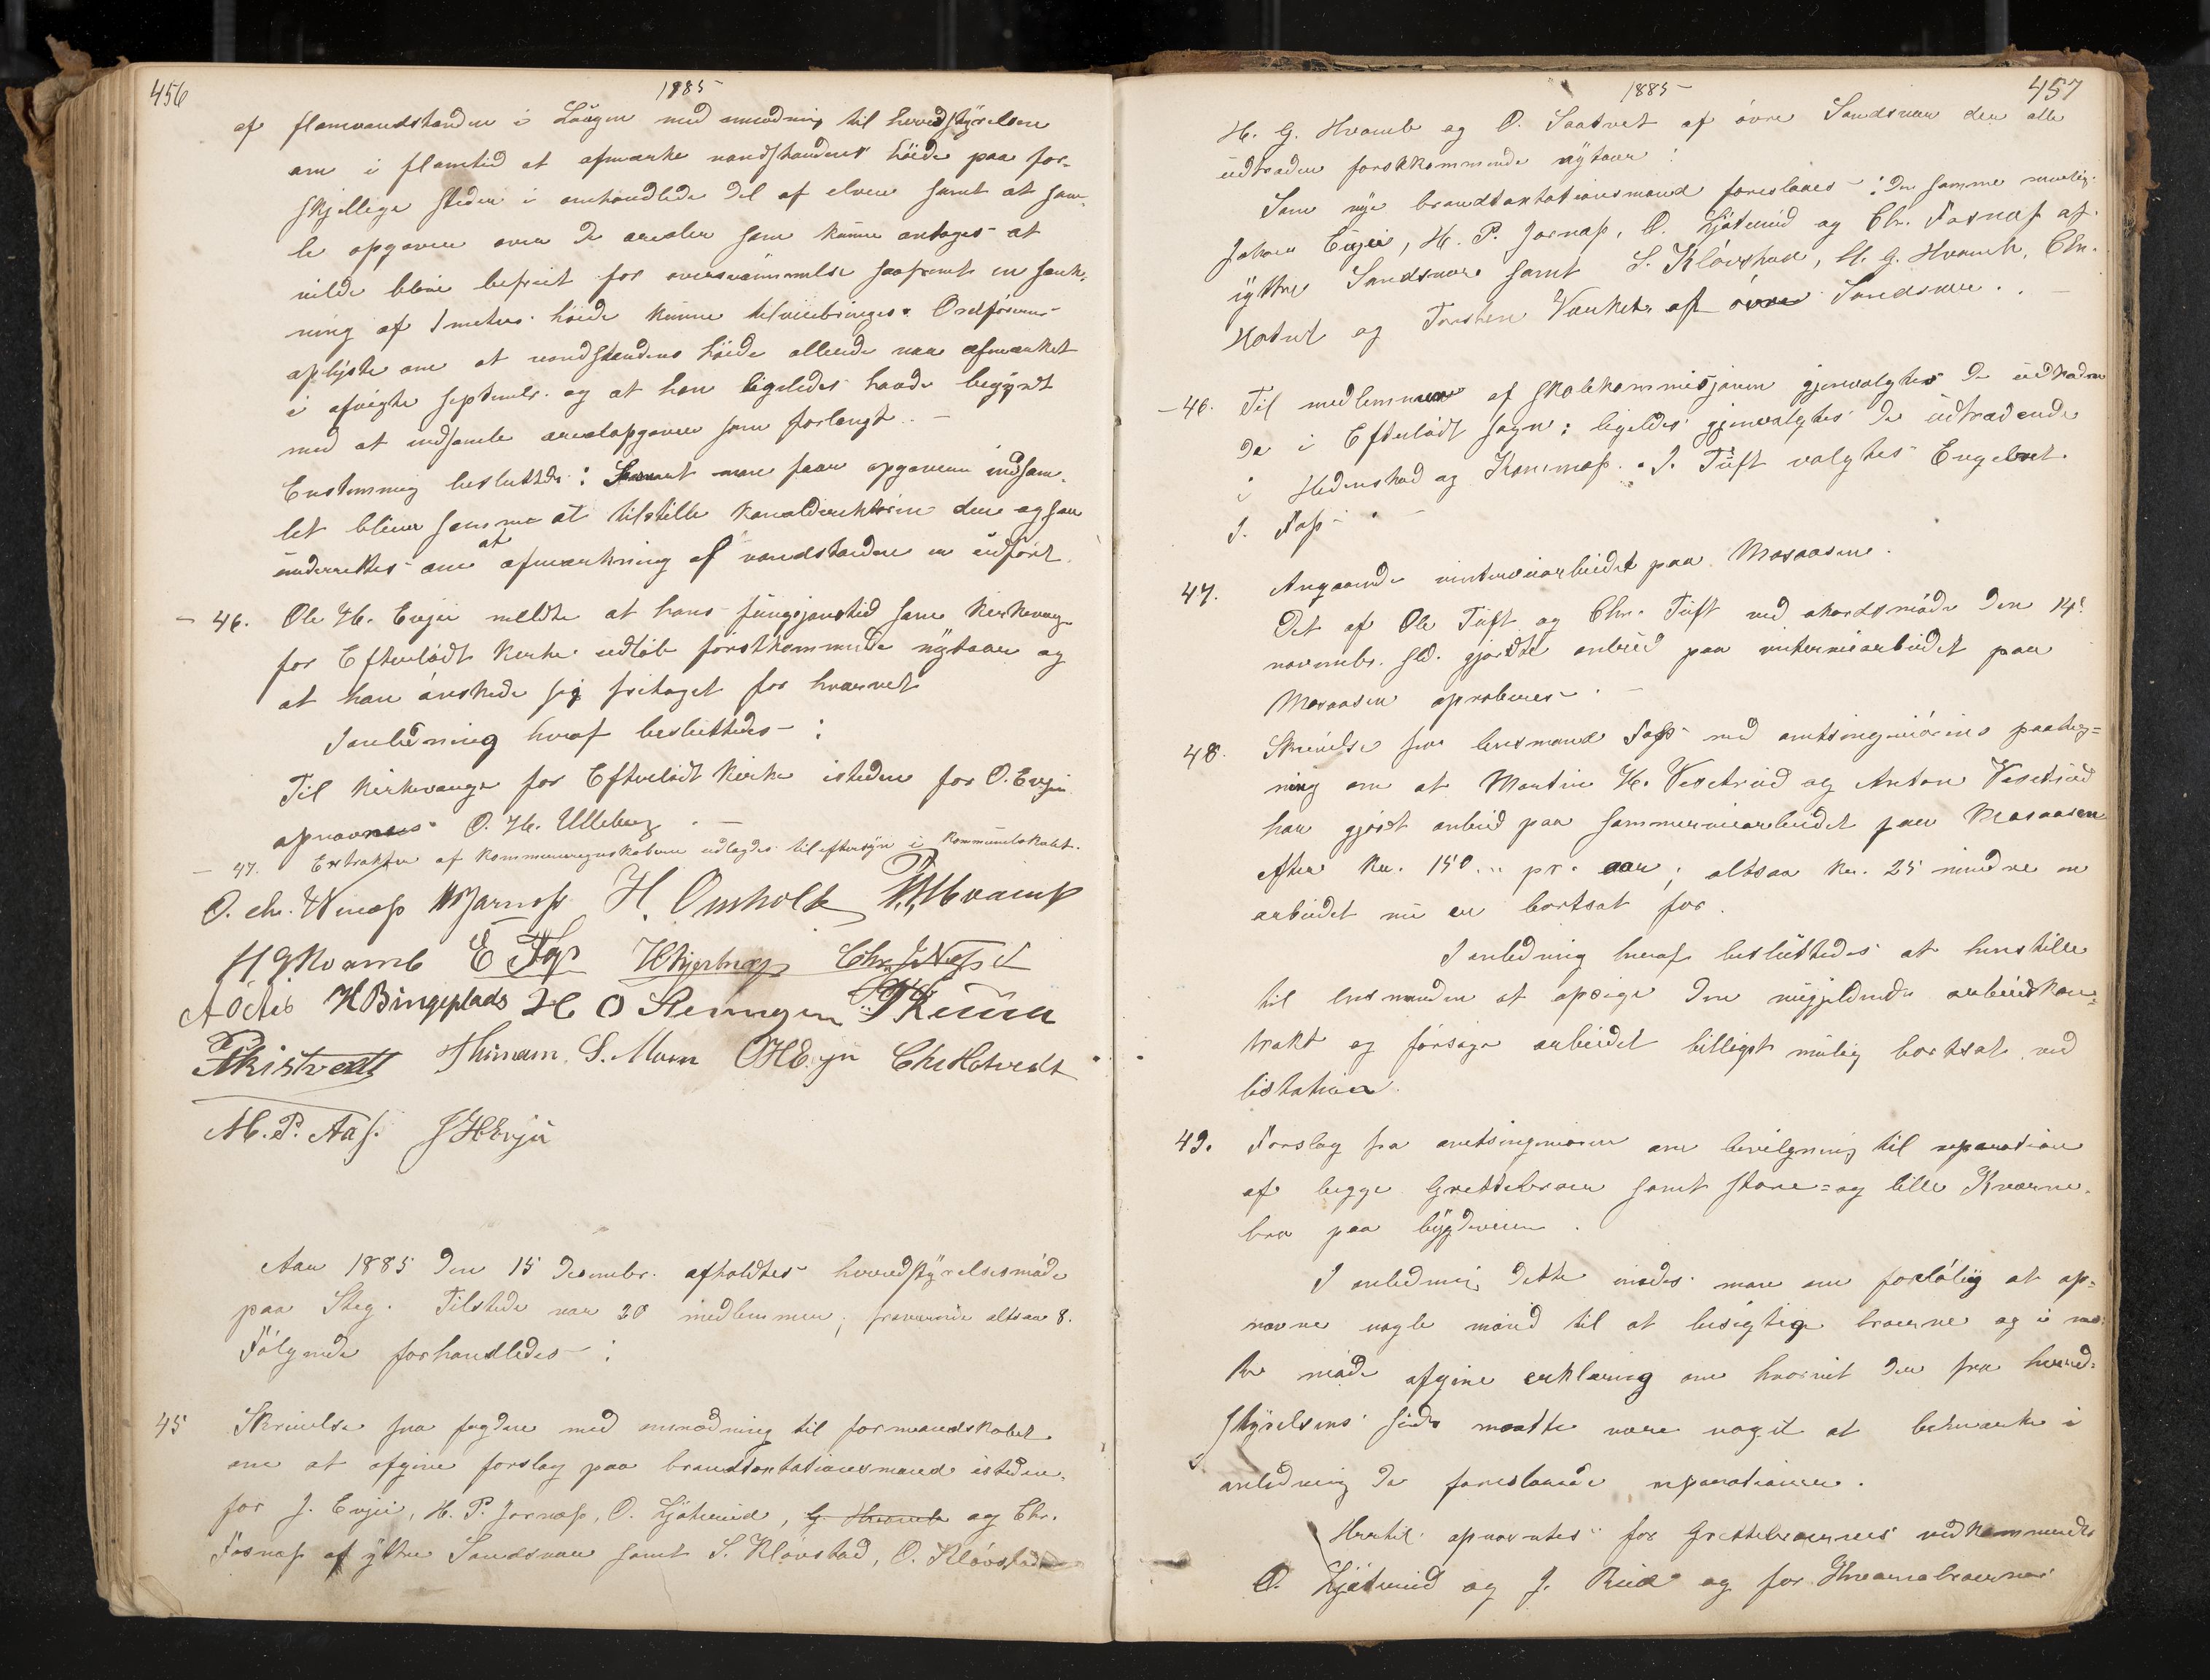 456
1885
af flomvandstanden i Laugen med anmodning til herredstyrelsen
om i flomtid at afmærke vandstandens høide paa for-
skjellige steder i omhandlede del af elven samt at sam-
le opgaver over de arealer som kunne antages at
vilde blive befriet for oversvømmelse saafremt en sænk-
ning af 1 meters høide kunne tilveiebringes. Ordføreren
oplyste om at vandstandens høide allerede var afmærket
i afvigte septembr. og at han ligeledes havde begyndt
med at indsamle arealopgaver som forlangt. -
Enstemmig besluttedes: Saasnart man faar opgaverne indsam-
let bliver samme at tilstille kanaldirektøren der og saa
underrettes om at afmærkning af vandstanden er udført.
- 46. Ole H. Evju meldte at hans fungsjonstid som kirkeverge
for Eftelødt kirke udløb førstkommende nytaar og
at han ønskede sig fritaget for hvervet
I anledning heraf besluttedes - :
Til kirkeverge for Eftelødt kirke istedenfor O. Evju
opnævnes O. H. Ulleberg. -
- 47. Extrakter af kommuneregnskaberne udlagdes til eftersyn i kommunelokalet.
O. Chr. Winæss HPJarnæss H. Omholt PHvamb
H G Hvamb E Foss Chr J Næss
H Bingeplads H O P Ruud
S. Moen O H Evju Chr Hotvedt
M. P. Aas. J H Evju
Aar 1885 den 15 decembr. afholdtes herredstyrelsesmøde
paa Steg. Tilstede var 20 medlemmer; fraværende altsaa 8.
Følgende forhandledes - :
45 Skrivelse fra fogden med anmodning til formandskabet
om at afgive forslag paa brandtaxtationsmænd isteden-
for J. Evju, H. P. Jornæss, O. Ljøterud, G. Hvamb og Chr.
Fosnæss af ytre Sandsvær samt S. Kløvstad, O. Kløvstad
1885 -
457
H. G. Hvamb og O. Saatvet af øvre Sandsvær der alle
udtræder førstkommende nytaar :
Som nye brandtaxtationsmænd foreslaaes - : De samme nemlig
Johan Evju, H. P. Jornæss, O. Ljøterud og Chr. Fosnæss af
ytre Sandsvær samt S. Kløvstad, H. G. Hvamb, Chr.
Hotvet og Torsten af øvre Sandsvær. . -
- 46. Til medlemmer af skolekommisjonen gjenvalgtes de udtræden
de i Eftelødt sogn; ligeledes gjenvalgtes de udtrædende
i Hedenstad og Komnæss. I. J. Tuft valgtes Engebret
J. Foss - . -
47. Angaaende vinterveiarbeidet paa Moaasene.
Det af Ole Tuft og Chr. Tuft ved akordsmøde den 14.
novembr. sl. gjordte anbud paa vinterveiarbeidet paa
Moaasen aproberes. -
48. Skrivelse fra lensmand Foss med amtsingeniørens paateg=
ning om at Martin H. Vesetrud og Anton Vesetrud
har gjort anbud paa sommerveiarbeidet paa Moaasen
efter kr. 150 .. pr. aar; altsaa kr. 25 mindre en
arbeidet nu er bortsat for.
I anledning heraf besluttedes at henstille
til lensmanden at opsige den nugjeldende arbeidskon=
trakt og forsøge arbeidet billigst mulig bortsat ved
lisitation.
49. Forslag fra amtsingeniøren om bevilgning til reparation
af begge Grettebroer samt store= og lille Kværne-
bro paa bygdeveien.
I anledning dette enedes man om foreløbig at op=
nævne nogle mænd til at besigtige broerne og i næ=
ste møde afgive erklæring om hvorvidt der fra herred=
styrelsens side maatte være noget at bemærke i
anledning de foreslaaede reparationer.
Hertil opnævntes for Grettebroernes vedkommende
O. Ljøterud og J. Ruud og for Kværnebroernes